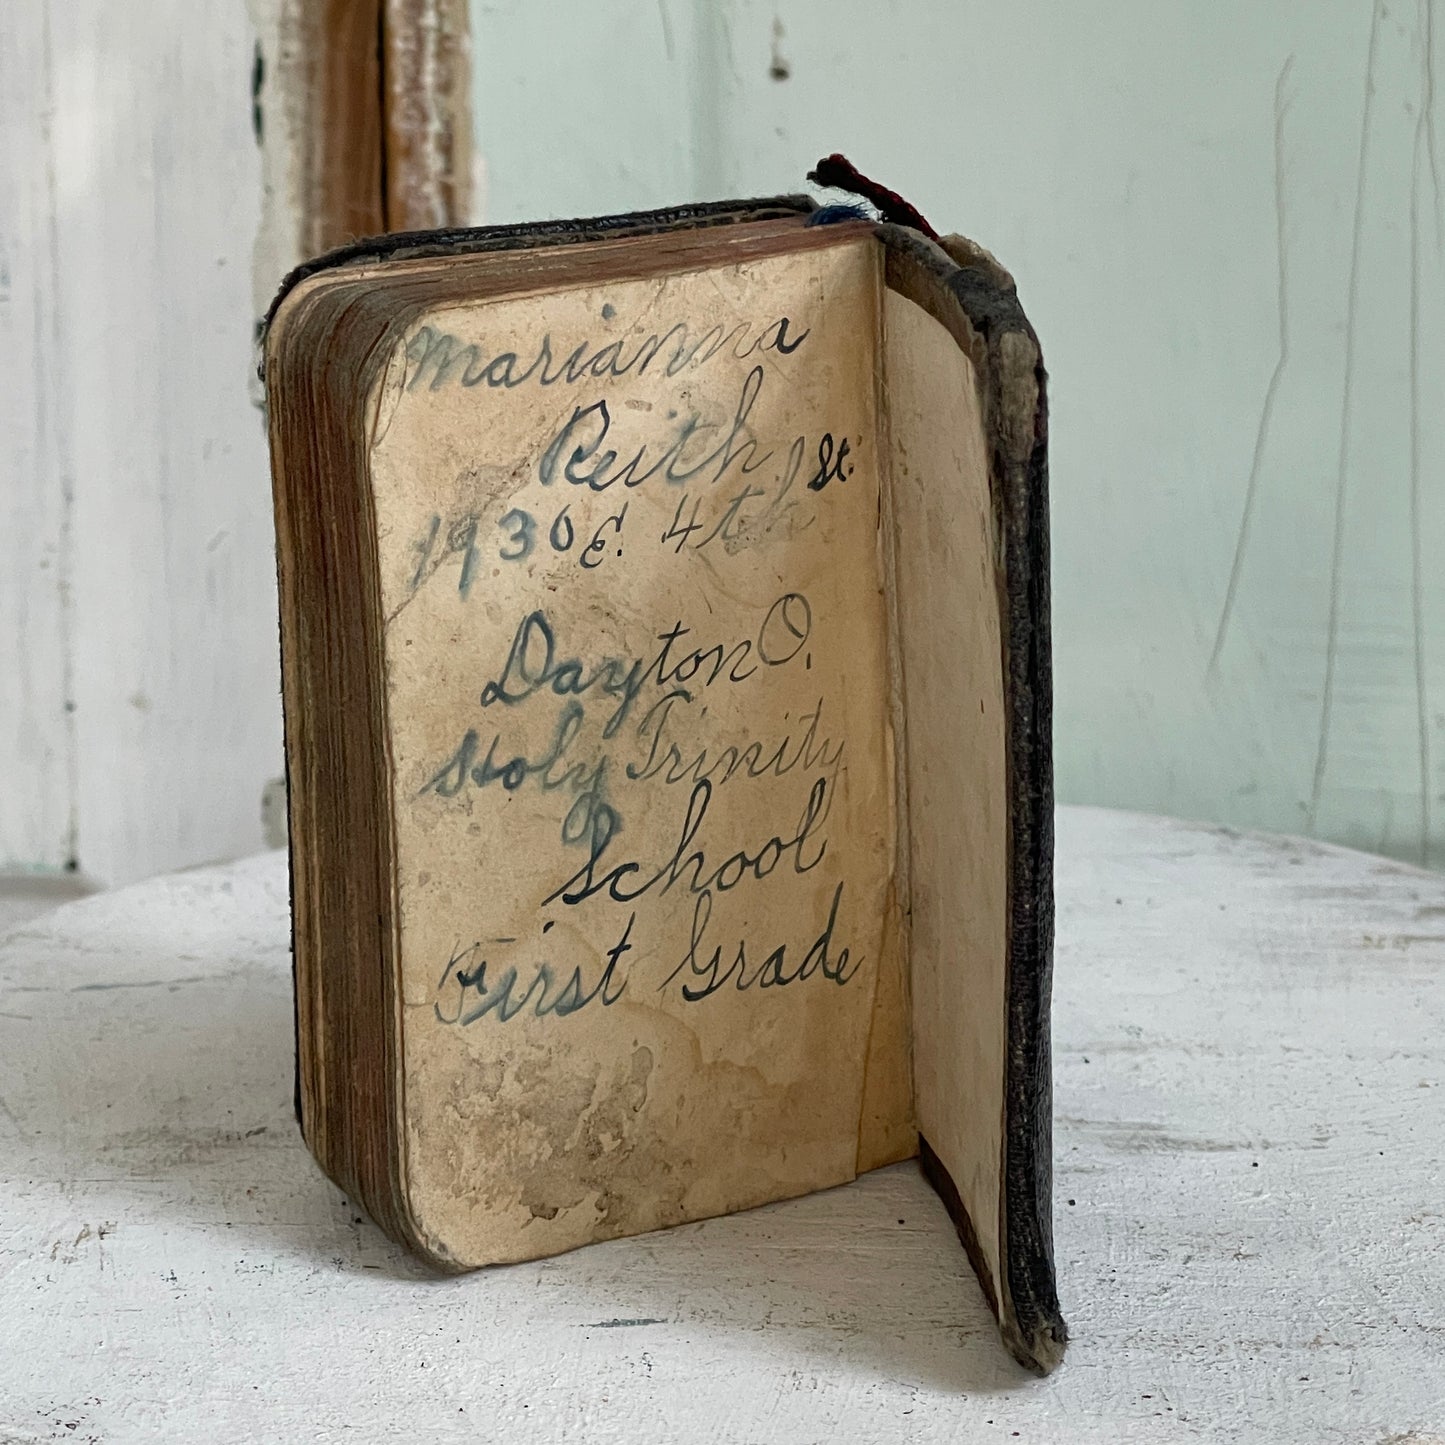 Marianna
Reith
1930 E. 4th St.
Dayton O.
Holy Trinity
School
First Grade